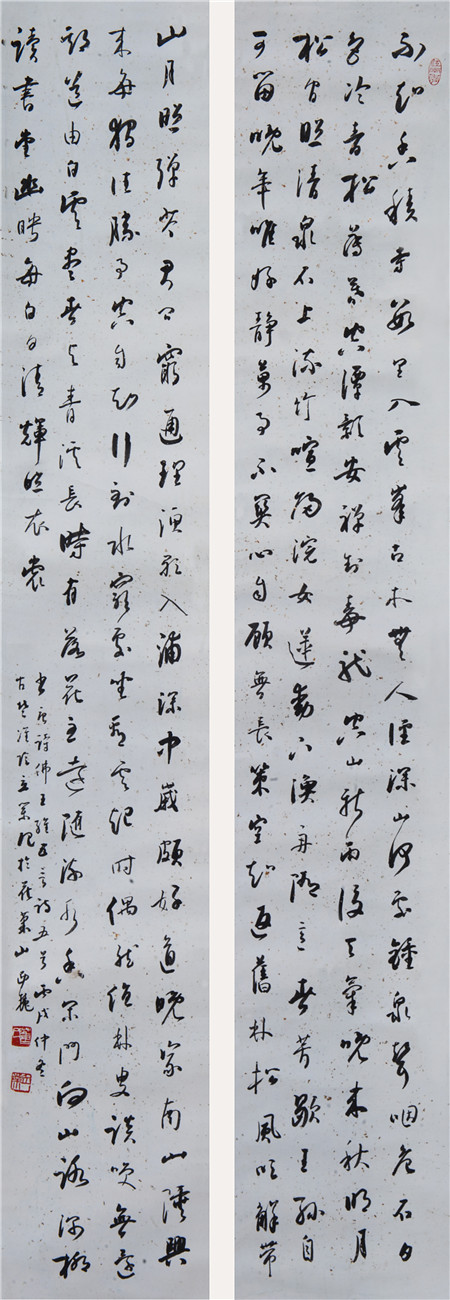 不知香積寺數里入雲峯古木無人徑深山何處鐘泉聲咽危石日
色冷青松薄暮空潭影安禪制毒龍空山新雨後天氣晚來秋明月
松間照清泉石上流竹喧歸浣女蓮動下漁舟隨意春芳歇王孫自
可留晚年唯好靜萬事不關心自顧無長策空知返舊林松風吹解帶
山月照彈琴君問窮通理漁歌入浦深中歲頗好道晚家南山陲興
來每獨往勝事空自知行到水窮處坐看雲起時偶然值林叟談笑無還
期道由白雲盡春與青溪長時有落花至遠隨流水香閑門向山路深柳
讀書堂幽映每白日清輝照衣裳
書唐詩佛王維五言詩五首丙戌仲冬
古楚漢